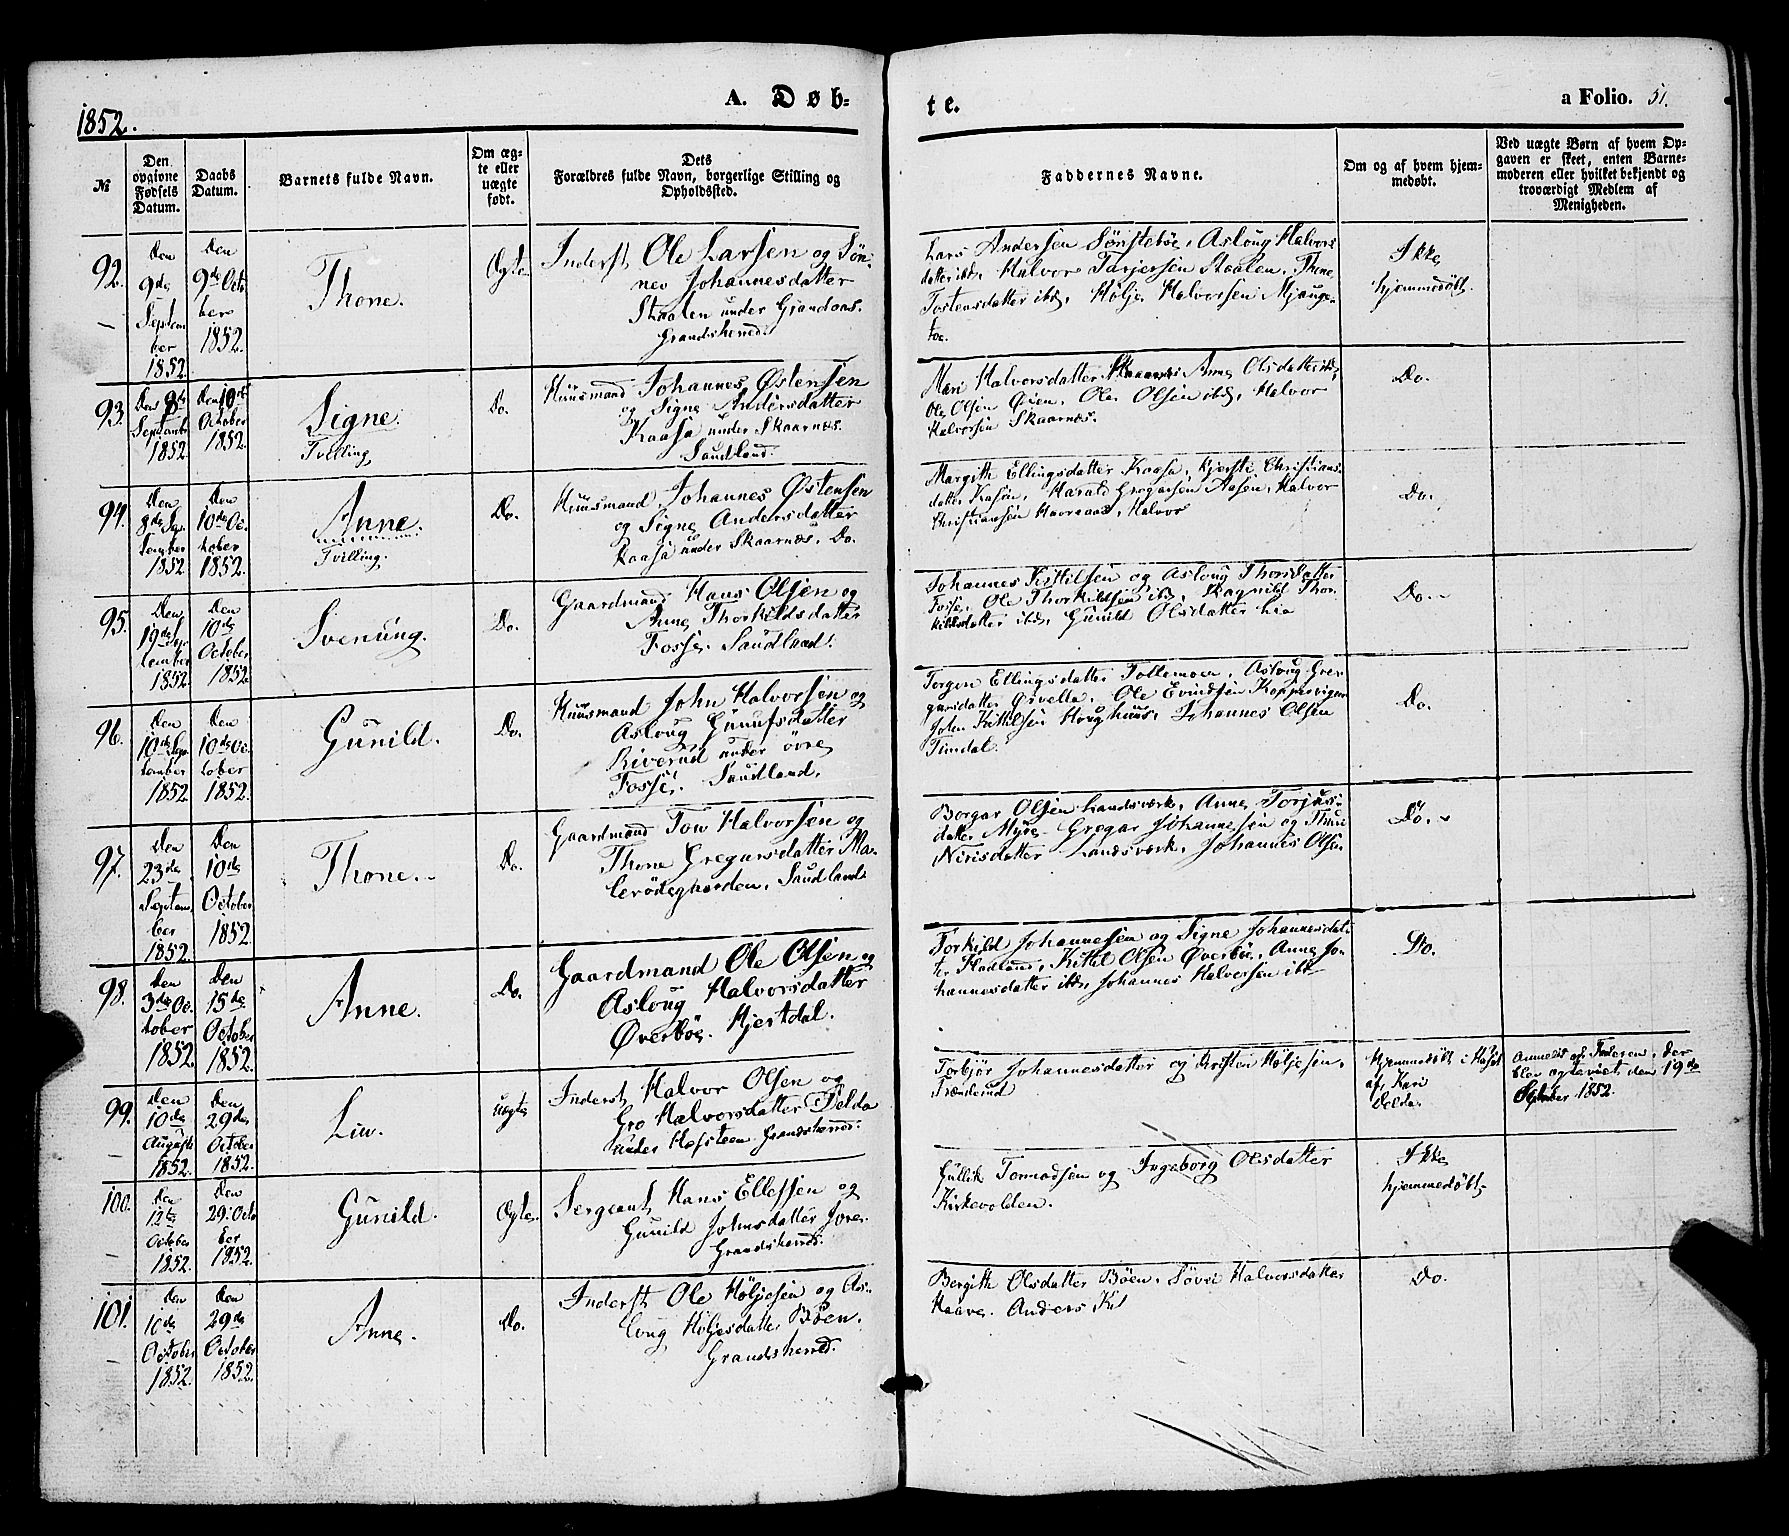 1852.
A. Døb-
te.
a Folio. 51.
№
Den opgivne Fødsels Datum.
Daabs Datum.
Barnets fulde Navn.
Om ægte eller uægte født.
Dets
Forældres fulde Navn, borgerlige Stilling og
Opholdssted.
Faddernes Navne.
Om og af hvem hjem-
medøbt.
Ved uægte Børn af hvem Op-
gaven er skeet, enten Barne-
moderen eller hvilket bekjendt og
troværdigt Medlem af
Menigheden.
92.
Den
9de
Septem
ber
1852.
Den
9de Octo
ber
1852.
Thone.
Ægte
Inderst Ole Larsen og Søn-
nev Johannesdatter
Staalen under
Grandsherred.
Lars Andersen Sønstebøe, Asloug Halvors
datter ibd, Halvor Tarjersen Staalen, Thone
Tostensdatter ibd, Hølje Halvorsen
Ikke
hjemmedøbt.
93.
Den 8de
Septemb
1852.
Den 10de
October
1852.
Signe.
Tvilling
Do.
Huusmand Johannes Østensen
og Signe Andersdatter
Kaasa under Skaarnæs.
Saudland.
Mari Halvorsdatter Anne Olsdatter ibd,
Ole Olsen Øien, Ole Olsen ibd, Halvor
Halvorsen Skaarnæs.
Do.
94.
Den
8de Sep-
tember
1852
Den
10de Oc-
tober
1852.
Anne.
Tvilling.
Do.
Huusmand Johannes Østensen
og Signe Andersdatter
Kaasa under Skaarnæs. Do.
Margith Ellingsdatter Kaasa, Kjersti Christians-
datter Kasin, Harald Gregarsen Aasen, Halvor
Christiansen Halvor
Do.
95.
Den
19de Sep-
tember
1852.
Den
10de
October
1852.
Svenung.
Do.
Gaardmand Hans Olsen og
Anne Thorkildsdatter
Fosse. Saudland.
Johannes Kittilsen og Asloug Thorsdatter
Fosse, Ole Thorkildsen ibd, Ragnild Thor-
kildsdatter ibd, Gunild Olsdatter
Do.-
96.
Den
10de Sep-
tember
1852.
Den
10de Oc-
tober
1852.
Gunild.
Do.
Huusmand John Halvorsen og
Asloug Gunufsdatter
Riverud under øvre
Fosse. Saudland.
Torgon Ellingsdatter Aslaug Gre-
garsdatter Ørvella, Ole Evindsen
John Kittilsen Houghuus, Johannes Olsen
Timdal.
Do.
97.
Den
23de
Septem-
ber
1852.
Den
10de
October
1852.
Thone.-
Do.
Gaardmand Tow Halvorsen og
Thone Gregarsdatter Ma-
lerødegaarden. Saudland.
Borgar Olsen Landsværk, Anne Torjus-
datter Myre. Gregar Johannesen og
Nirisdatter Landsværk, Johannes Olsen
Do.-
98.
Den
3de Oc-
tober
1852.
Den
15de
October
1852.
Anne.
Do.
Gaardmand Ole Olsen og
Asloug Halvorsdatter
Øverbøe. Hjertdal.
Torkild Johannesen og Signe Johannesdat-
ter Kittel Olsen Øverbøe, Anne Jo-
hannesdatter ibd, Johannes Halvorsen ibd
Do.
99.
Den
10de
August
1852.
Den
29de
October
1852.
Liv.
uægte
Inderst Halvor Olsen og
Gro Halvorsdatter Delda
under Hofsteen Grandsherred.
Torbjør Johannesdatter og Kristen Høljesen,
Hjemmedøbt i
af Kari
Delda.
Anmeldt af Faderen, der
blev den 19de
October 1852.
100.
Den
12te
October
1852.
Den
29. Octo
ber
1852.
Gunild.
Ægte.
Sergeant Hans Ellefsen og
Gunild Johnsdatter Jore.
Grandsherred.
Gullik og Ingeborg Olsdatter
Kirkevolden.
Ikke
hjemmedøbt.
101.
Den
10de
October
1852.
Den
29de
October
1852.
Anne.
Do.
Inderst Ole Høljesen og As-
loug Høljesdatter Bøen.
Grandsherred.
Bergith Olsdatter Bøen, Halvorsdatter
Haave. Anders
Do.